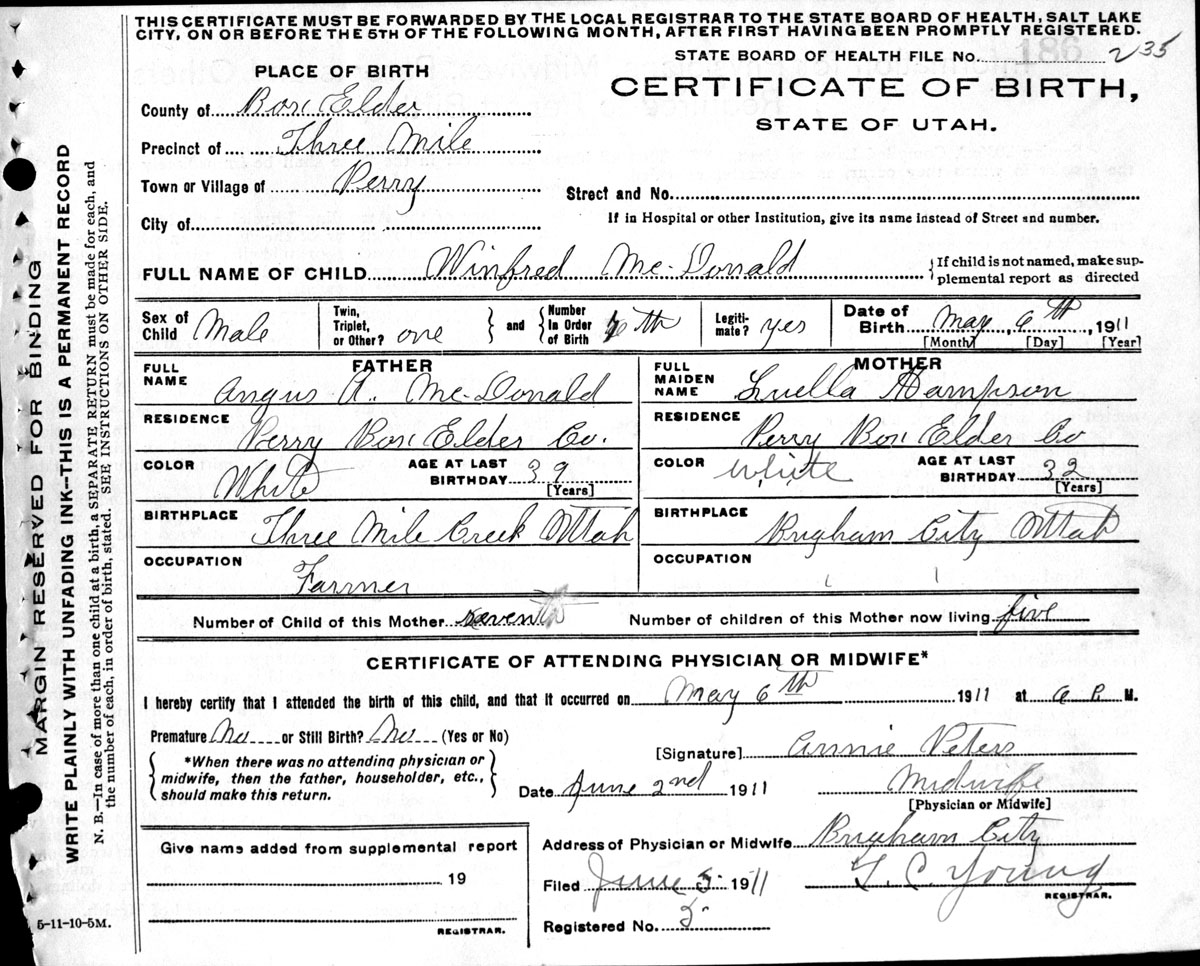 THIS CERTIFICATE MUST BE FORWARDED BY THE LOCAL REGISTRAR TO THE STATE BOARD OF HEALTH, SALT LAKE
CITY, ON OR BEFORE THE 5TH OF THE FOLLOWING MONTH, AFTER FIRST HAVING BEEN PROMPTLY REGISTERED.
STATE BOARD OF HEALTH FILE No. 186 235
PLACE OF BIRTH
CERTIFICATE OF BIRTH,
STATE OF UTAH.
County of Box Elder
Precinct of Three Mile
Town or Village of Perry
Street and No.
City of
If in Hospital or other Institution, give its name instead of Street and number.
FULL NAME OF CHILD Winfred Mc-Donald
{If child is not named, make sup-
plemental report as directed
Sex of Child Male
Twin, Triplet, or Other? one
and
Number In Order of Birth 7th
Legiti-mate? yes
Date of Birth May 6th, 1911
[Month] [Day] [Year]
FATHER
FULL NAME Angus A. Mc-Donald
RESIDENCE Perry Box Elder Co.
COLOR White
AGE AT LAST BIRTHDAY 39
[Years]
BIRTHPLACE Three Mile Creek Utah
OCCUPATION Farmer
MOTHER
FULL MAIDEN NAME Luella Hampson
RESIDENCE Perry Box Elder Co
COLOR White
AGE AT LAST BIRTHDAY 32
[Years]
BIRTHPLACE Brigham City Utah
OCCUPATION
Number of Child of this Mother seventh
Number of children of this Mother now living five
CERTIFICATE OF ATTENDING PHYSICIAN OR MIDWIFE*
I hereby certify that I attended the birth of this child, and that it occurred on May 6th 1911 at 6 P. M.
Premature No or Still Birth? No (Yes or No)
*When there was no attending physician or
midwife, then the father, householder, etc.,
should make this return.
[Signature] Annie Peters
Date June 2nd 1911
Midwife
[Physician or Midwife]
Address of Physician or Midwife Brigham City
Filed June 5 1911
T. C. Young
REGISTRAR.
Registered No. 5
Give name added from supplemental report
19
REGISTRAR.
5-11-10-5M.
MARGIN RESERVED FOR BINDING
WRITE PLAINLY WITH UNFADING INK--THIS IS A PERMANENT RECORD
N. B.—In case of more than one child at a birth, a SEPARATE RETURN must be made for each, and
the number of each, in order of birth, stated. SEE INSTRUCTIONS ON OTHER SIDE.